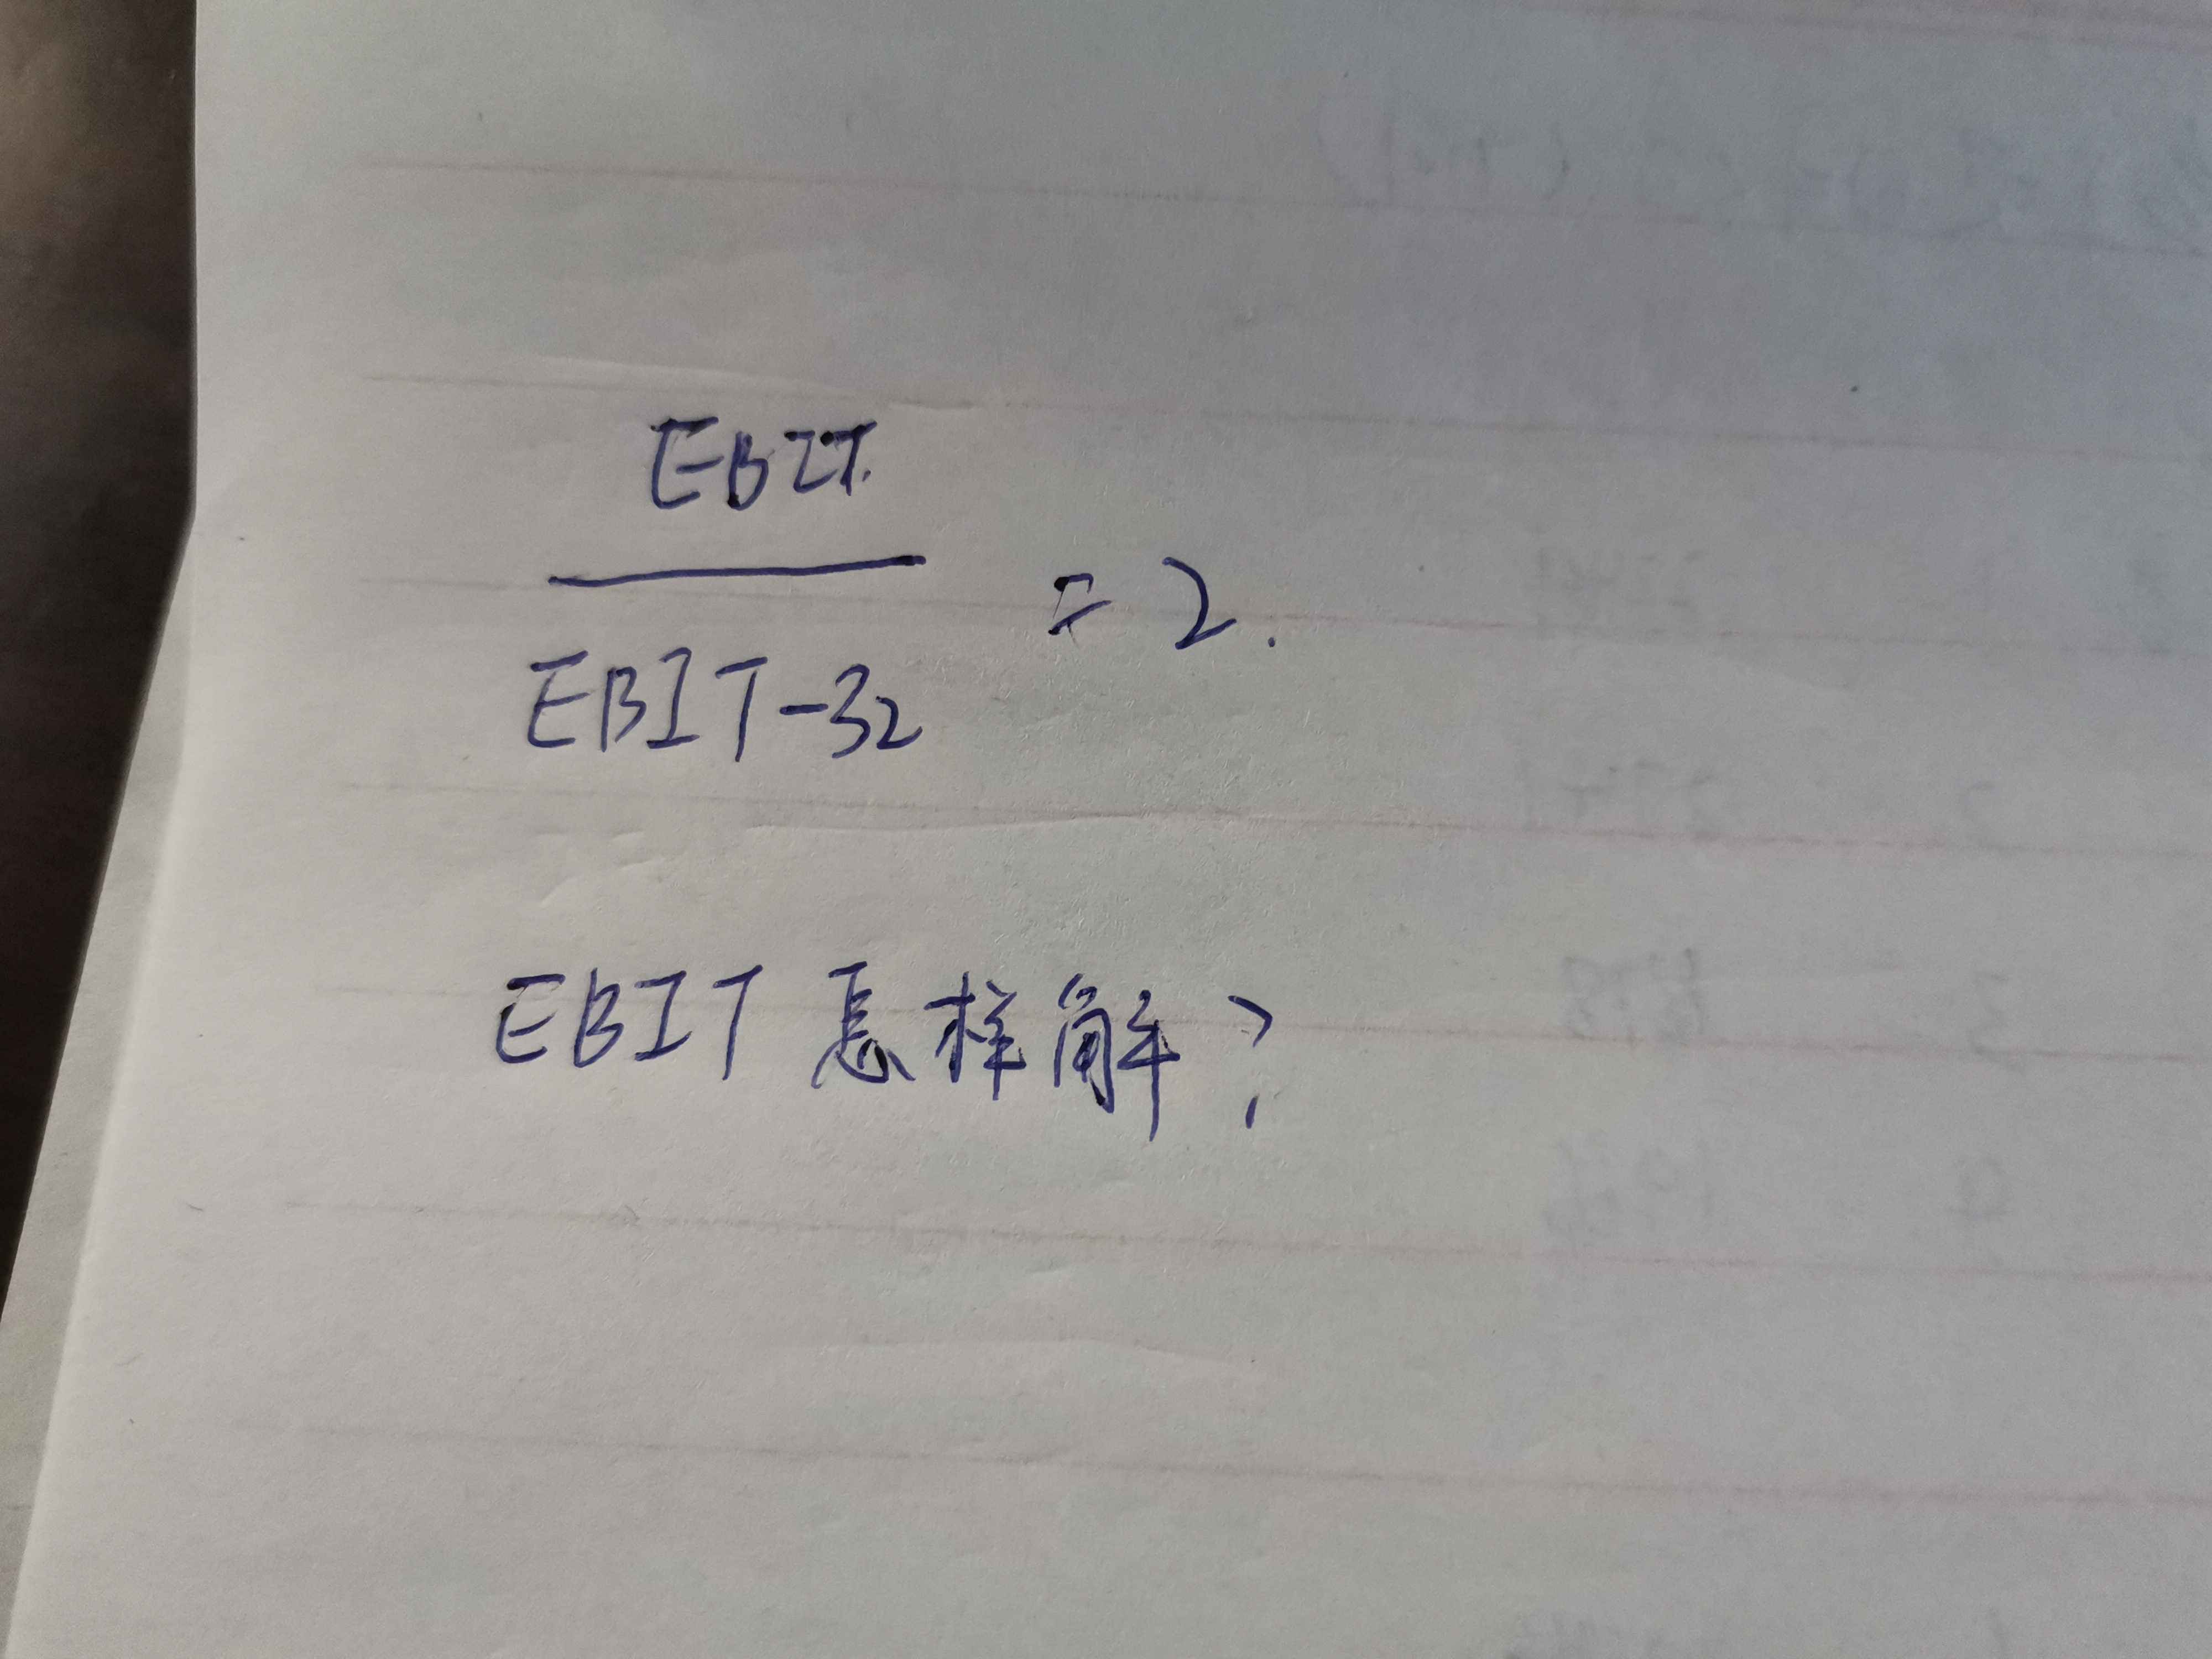 EBIT
EBIT-32
=2.
EBIT 怎样解?